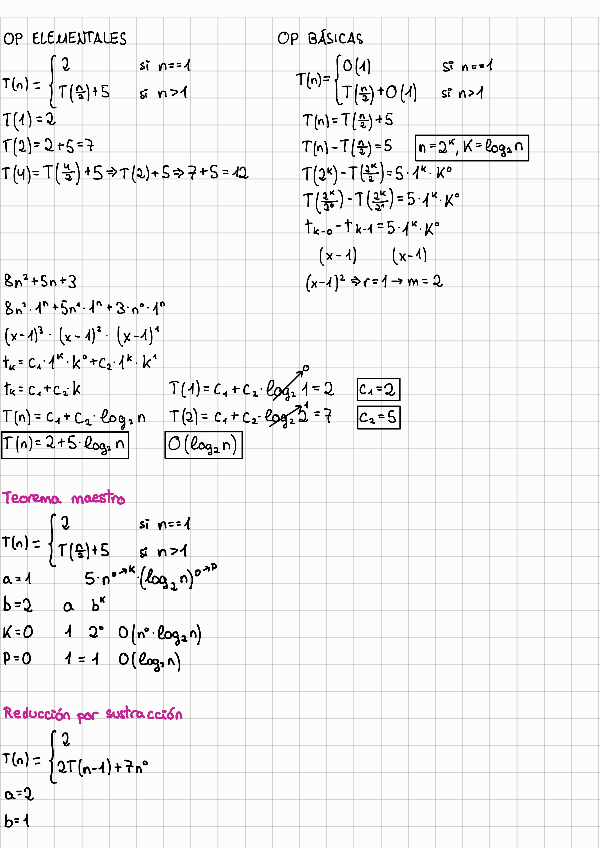 OP ELEMENTALES
T(n) = { 2 si n==1
T(n/2)+5 si n>1
T(1) = 2
T(2) = 2+5 = 7
T(4) = T(4/2) + 5 ⇒ T(2)+5 ⇒ 7+5 = 12
OP BÁSICAS
T(n) = { O(1) si n==1
T(n/2)+O(1) si n>1
T(n) = T(n/2)+5
T(n) - T(n/2) = 5 n=2^k, K=log₂n
T(2^k) - T(2^k/2) = 5·1^k·K⁰
T(2^k/2⁰) - T(2^k/2¹) = 5·1^k·K⁰
t_{k-0} - t_{k-1} = 5·1^k·K⁰
(x-1) (x-1)
(x-1)² ⇒ r=1 → m=2
8n²+5n+3
8n²·1ⁿ+5n¹·1ⁿ+3·n⁰·1ⁿ
(x-1)³ · (x-1)² · (x-1)¹
t_k = c₁·1^k·k⁰+c₂·1^k·k¹
t_k = c₁+c₂·k T(1) = c₁+c₂·log₂1 = 2 0 c₁=2
T(n) = c₁+c₂·log₂n T(2) = c₁+c₂·log₂2 = 7 1 c₂=5
T(n) = 2+5·log₂n O(log₂n)
Teorema maestro
T(n) = { 2 si n==1
T(n/2)+5 si n>1
a=1 5·n^{0→K}·(log₂n)^{0→P}
b=2 a b^k
K=0 1 2⁰ O(n⁰·log₂n)
P=0 1 = 1 O(log₂n)
Reducción por sustracción
T(n) = { 2
2T(n-1)+7n⁰
a=2
b=1